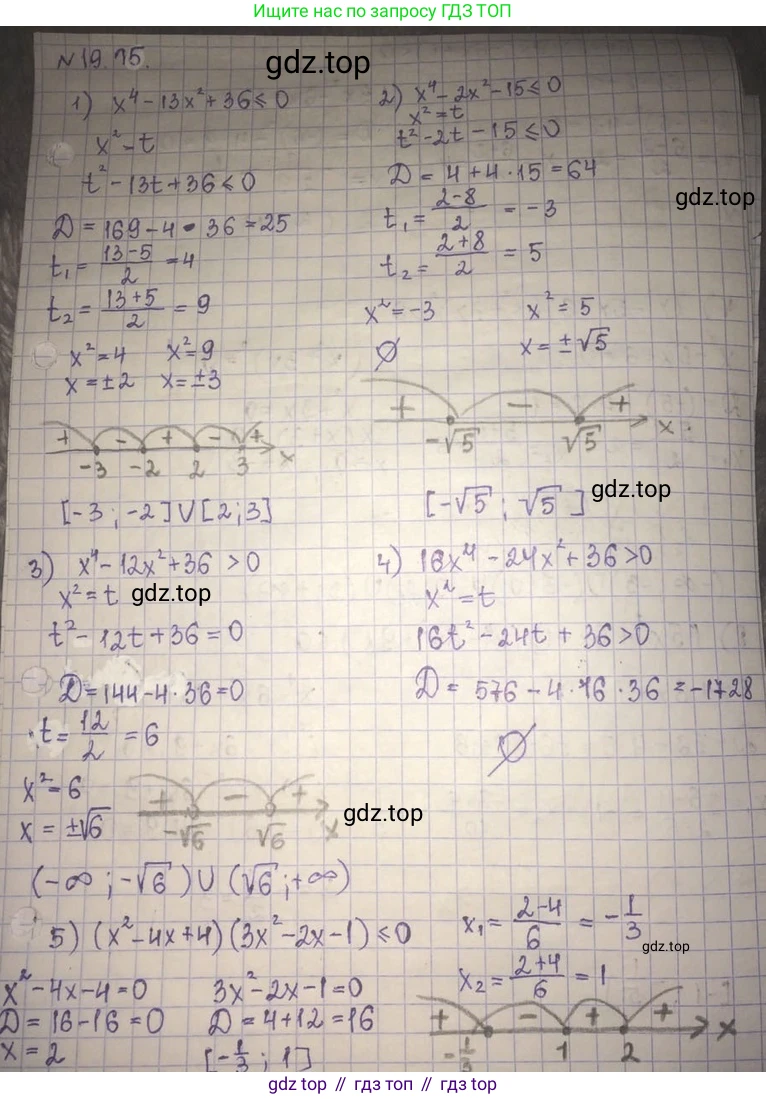 Ищите нас по запросу ГДЗ ТОП
№19.15.
gdz.top
1) x⁴-13x²+36≤0
x²-t
t²-13t+36≤0
D=169-4·36=25
t₁=(13-5)/2=4
t₂=(13+5)/2=9
x²=4 x²=9
x=±2 x=±3
+ - + - +
-3 -2 2 3 x
[-3;-2]∪[2;3]
2) x⁴-2x²-15≤0
x²=t
t²-2t-15≤0
D=4+4·15=64
gdz.top
t₁=(2-8)/2=-3
t₂=(2+8)/2=5
x²=-3 x²=5
∅ x=±√5
+ - +
-√5 √5 x.
[-√5;√5]
gdz.top
3) x⁴-12x²+36>0
x²=t gdz.top
t²-12t+36=0
D=144-4·36=0
t=12/2=6
x²=6
x=±√6
+ - +
-√6 √6 x
(-∞;-√6)∪(√6;+∞)
4) 16x⁴-24x²+36>0
x²=t
16t²-24t+36>0
D=576-4·16·36=-1728
∅
gdz.top
5) (x²-4x+4)(3x²-2x-1)≤0
x²-4x-4=0 3x²-2x-1=0
D=16-16=0 D=4+12=16
x=2 [-1/3;1]
x₁=(2-4)/6=-1/3
gdz.top
x₂=(2+4)/6=1
+ - + +
-1/3 1 2 x
gdz.top // гдз топ // gdz.top